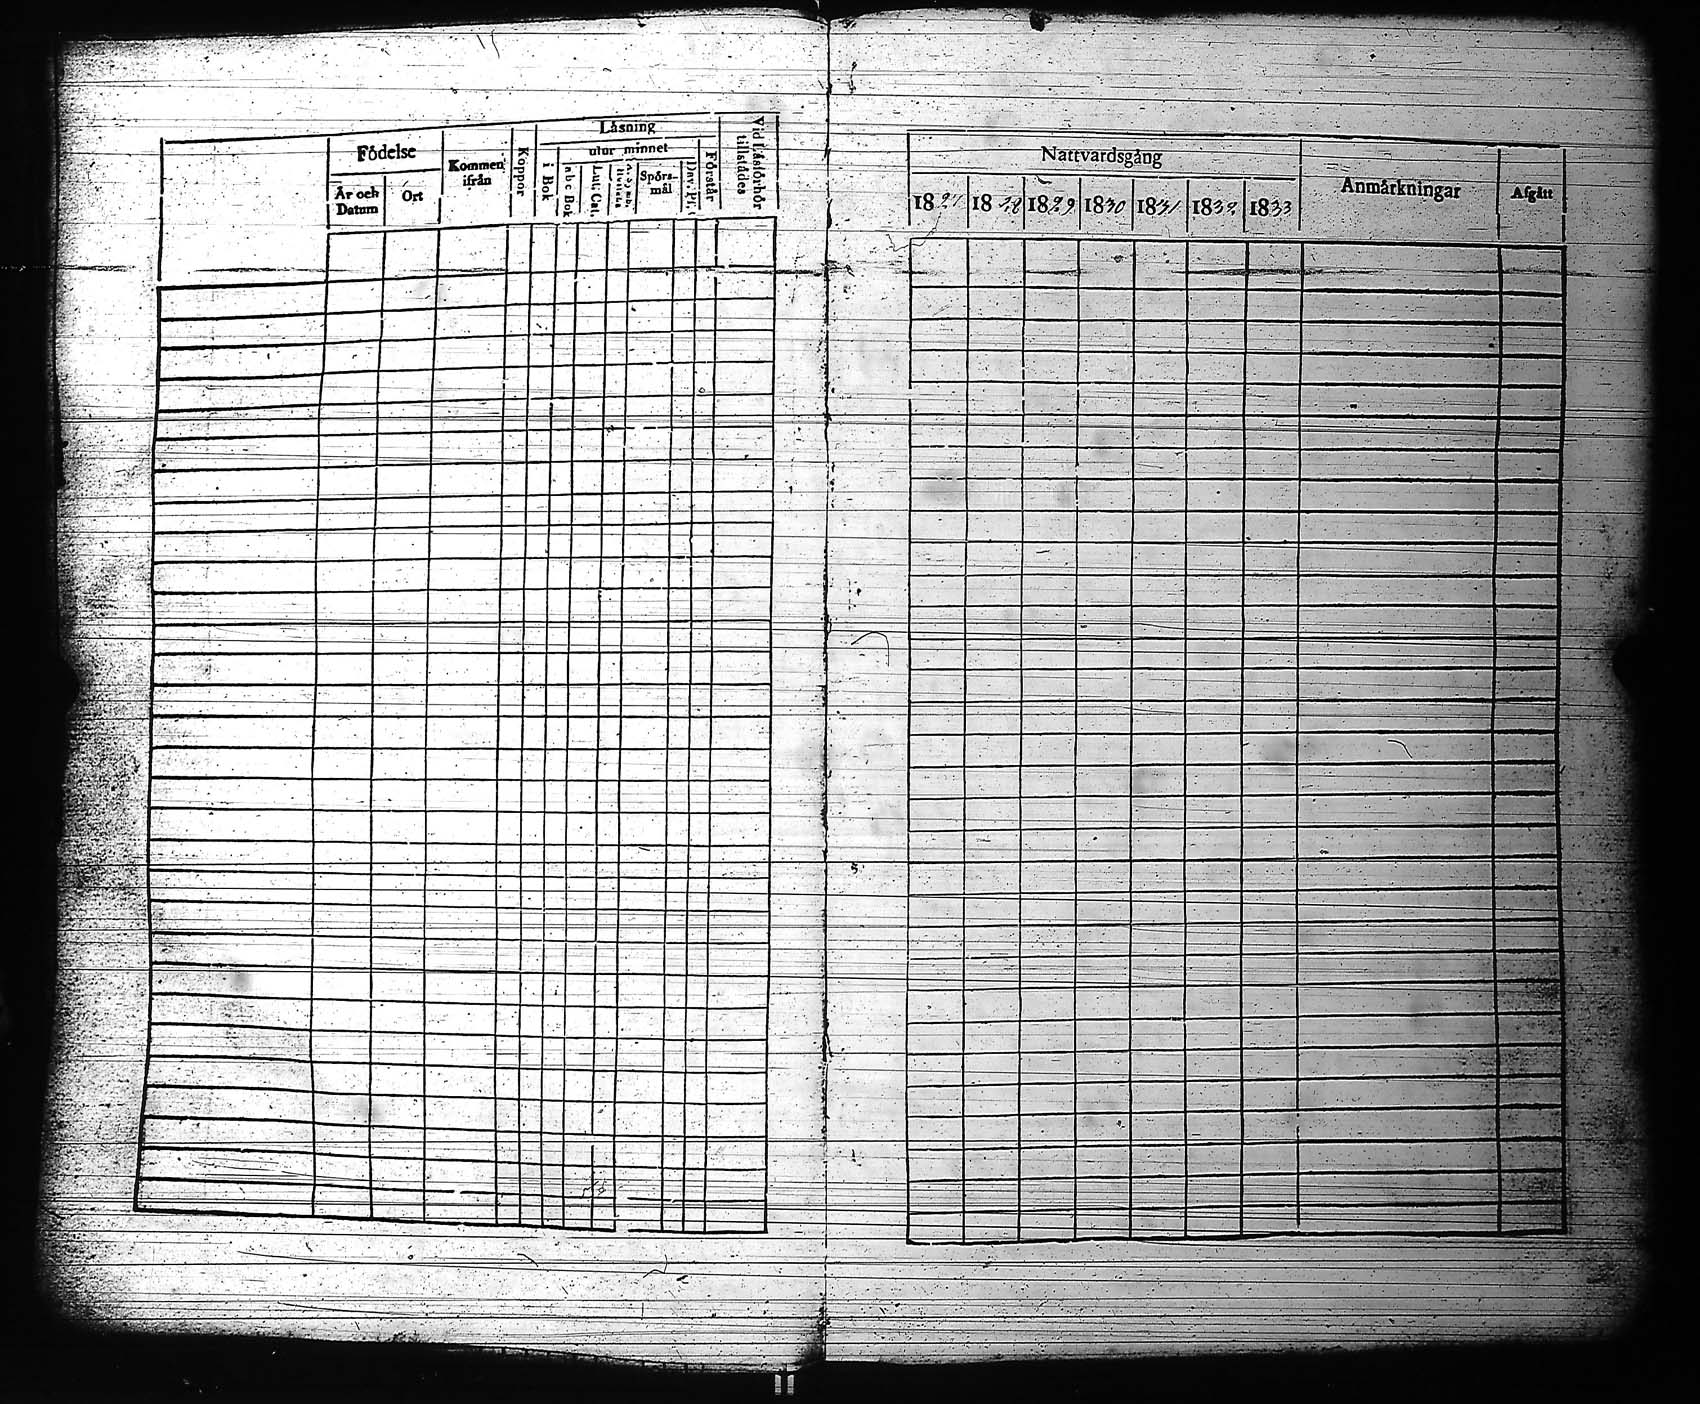 Födelse
År och Datum
Ort
Kommen ifrån
Koppor
Läsning
i Bok
utur minnet
abc Bok
Lutt. Cat.
Spörsmål
Dav. Ps.
Förstår
Vid Läsförhör tillstådes
Nattvardsgång
1827 1828 1829 1830 1831 1832 1833
Anmärkningar
Afgått